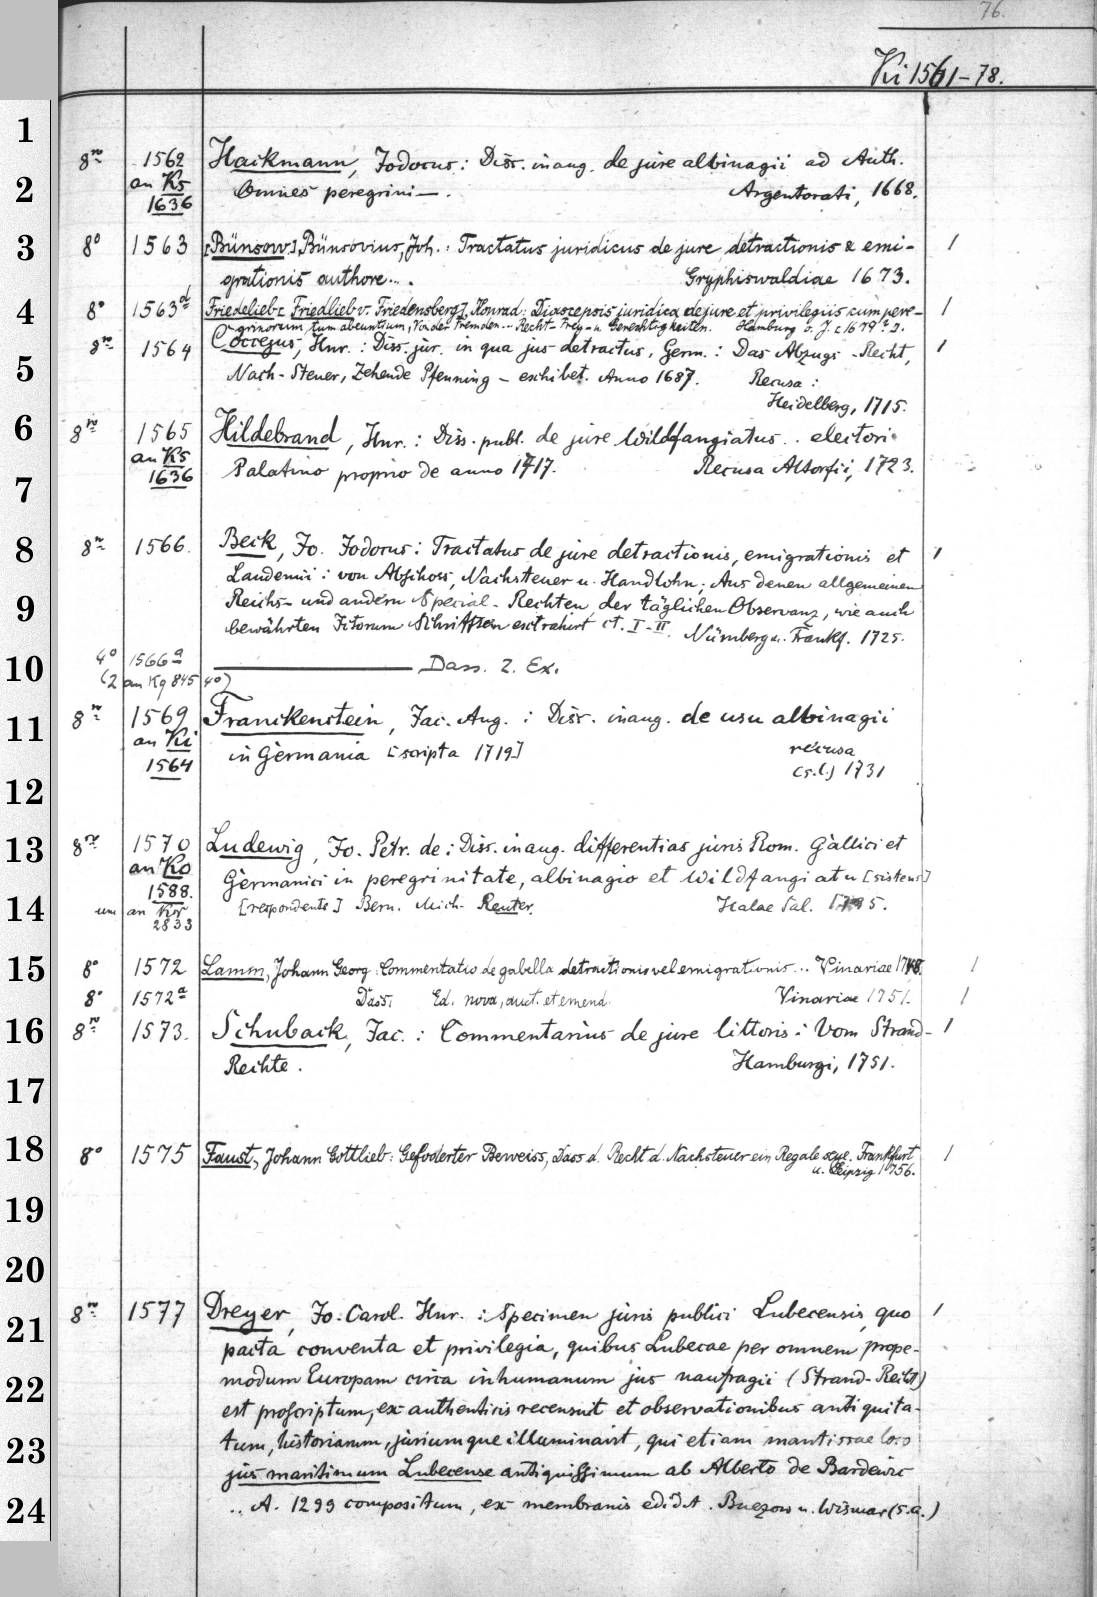 76.
Ki 1561-78.
1
8° 1562 Haikmann, Jodocus: Diss. inaug. de jure albinagii ad Auth.
2
an Ks Omnes peregrini—. Argentorati, 1668.
1636
3
8° 1563 [Bünsow] Bünsovius, Joh.: Tractatus juridicus de jure detractionis & emi- 1
grationis authore... Gryphiswaldiae 1673.
4
8° 1563a Friedelieb [Friedlieb v. Friedensberg], Konrad: Diascepsis juridica de jure et privilegiis cum pere- 1
grinorum, tum abeuntium, Von der Fremden... Recht- Frey- u. Gerechtigkeiten. Hamburg o. J.
8° 1564 Coccejus, Hnr.: Diss. jur. in qua jus detractus, Germ.: Das Abzugs-Recht, 1
5
Nach-Steuer, Zehende Pfenning — exhibet. Anno 1687. Recusa:
Heidelberg, 1715.
6
8° 1565 Hildebrand, Hnr.: Diss. publ. de jure Wildfangiatus.. electori
an Ks Palatino proprio de anno 1717. Recusa Altorfii, 1723.
1636
7
8
8° 1566. Beck, Jo. Jodocus: Tractatus de jure detractionis, emigrationis et 1
Laudemii: von Abschoss, Nachsteuer u. Handlohn. Aus denen allgemeinen
9
Reichs- und andern Special-Rechten, der täglichen Observanz, wie auch
bewährten Jctorum Schrifften extrahirt ct. I-II. Nürnberg u. Frankf. 1725.
10
4° 1566a ——— Dass. 2. Ex.
(2 an Kg 845 4°)
11
8° 1569 Franckenstein, Jac. Aug.: Diss. inaug. de usu albinagii
an Ki in Germania [scripta 1719] recusa
1564 (s.l.) 1731
12
13
8° 1570 Ludewig, Jo. Petr. de: Diss. inaug. differentias juris Rom. Gallici et
an Ko Germanici in peregrinitate, albinagio et Wildfangiatu [sistens]
1588.
14
um an Kr [respondente] Bern. Mich. Reuter. Halae Sal.
2833
15
8° 1572 Lamm, Johann Georg: Commentatio de gabella detractionis vel emigrationis... Vinariae 1
8° 1572a Dass. Ed. nova, auct. et emend. Vinariae 1751. 1
16
8° 1573. Schuback, Jac.: Commentarius de jure littoris: Vom Strand- 1
Rechte. Hamburgi, 1751.
17
18
8° 1575 Faust, Johann Gottlieb: Gefoderter Beweiss, Dass d. Recht d. Nachsteuer ein Regale seye. Frankfurt 1
u. Leipzig 1756.
19
20
21
8° 1577 Dreyer, Jo. Carol. Hnr.: Specimen juris publici Lubecensis, quo 1
pacta conventa et privilegia, quibus Lubecae per omnem prope-
22
modum Europam circa inhumanum jus naufragii (Strand-Recht)
est proscriptum, ex authenticis recensuit et observationibus antiquita-
23
tum, historiarum, juriumque illuminavit, qui etiam mantissae loco
jus maritimum Lubecense antiquissimum ab Alberto de Bardewic
24
.. A. 1299 compositum, ex membranis edidit. Buezow u. Wismar (s.a.)